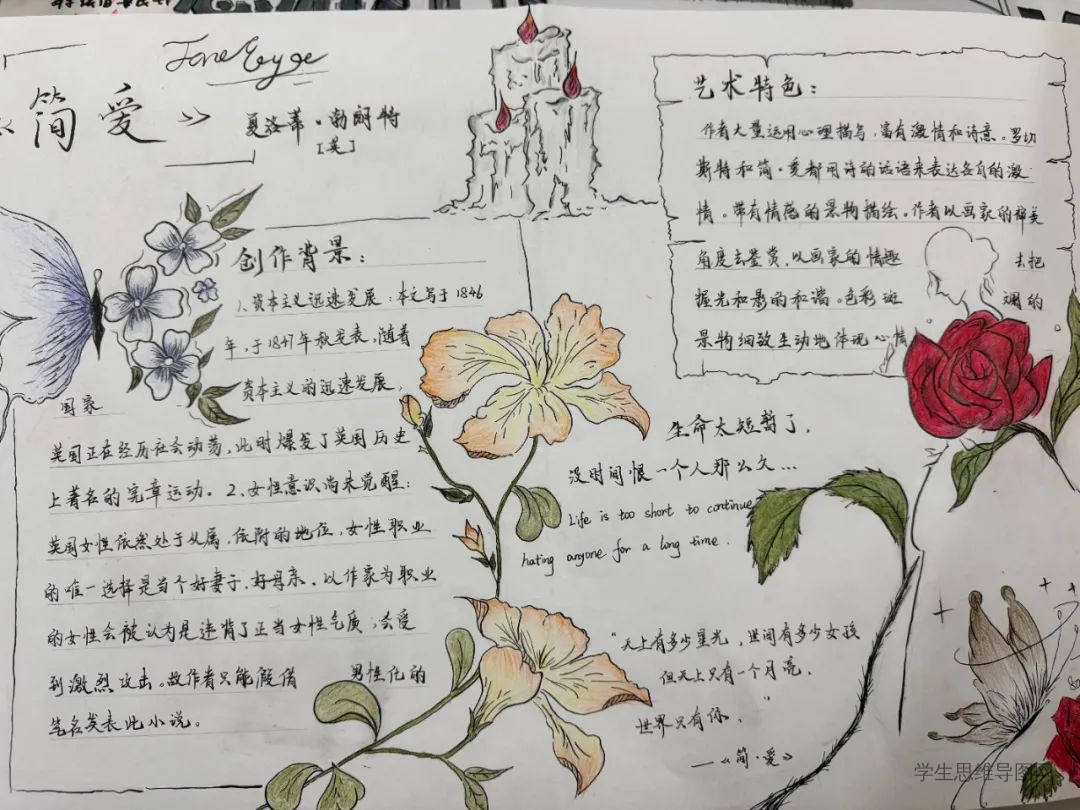 Jane Eyge
《简爱》
夏洛蒂·勃朗特
[英]
创作背景:
1、资本主义迅速发展:本文写于1846
年,于1847年秋发表,随着
资本主义的迅速发展,
国家
英国正在经历社会动荡,此时爆发了英国历史
上著名的宪章运动。2、女性意识尚未觉醒:
英国女性依然处于从属、依附的地位,女性职业
的唯一选择是当个好妻子、好母亲。以作家为职业
的女性会被认为是违背了正当女性气质,会受
到激烈攻击。故作者只能假借 男性化的
笔名发表此小说。
艺术特色:
作者大量运用心理描写,富有激情和诗意。罗切
斯特和简·爱都用诗的话语来表达各自的激
情。带有情感的景物描绘。作者以画家的审美
角度去鉴赏,以画家的情趣 去把
握光和影的和谐。色彩斑 斓的
景物细致生动地体现心情
生命太短暂了,
没时间恨一个人那么久...
Life is too short to continue
hating anyone for a long time.
"天上有多少星光,世间有多少女孩
但天上只有一个月亮,
世界只有你。"
—《简·爱》
学生思维导图